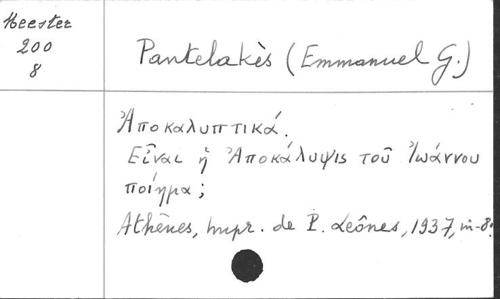 Meester
200
8
Pantelakès (Emmanuel G.)
Ἀποκαλυπτικά.
Εἶναι ἡ Ἀποκάλυψις τοῦ Ἰωάννου
ποίημα;
Athènes, Impr. de P. Leônes, 1937, in-8º.